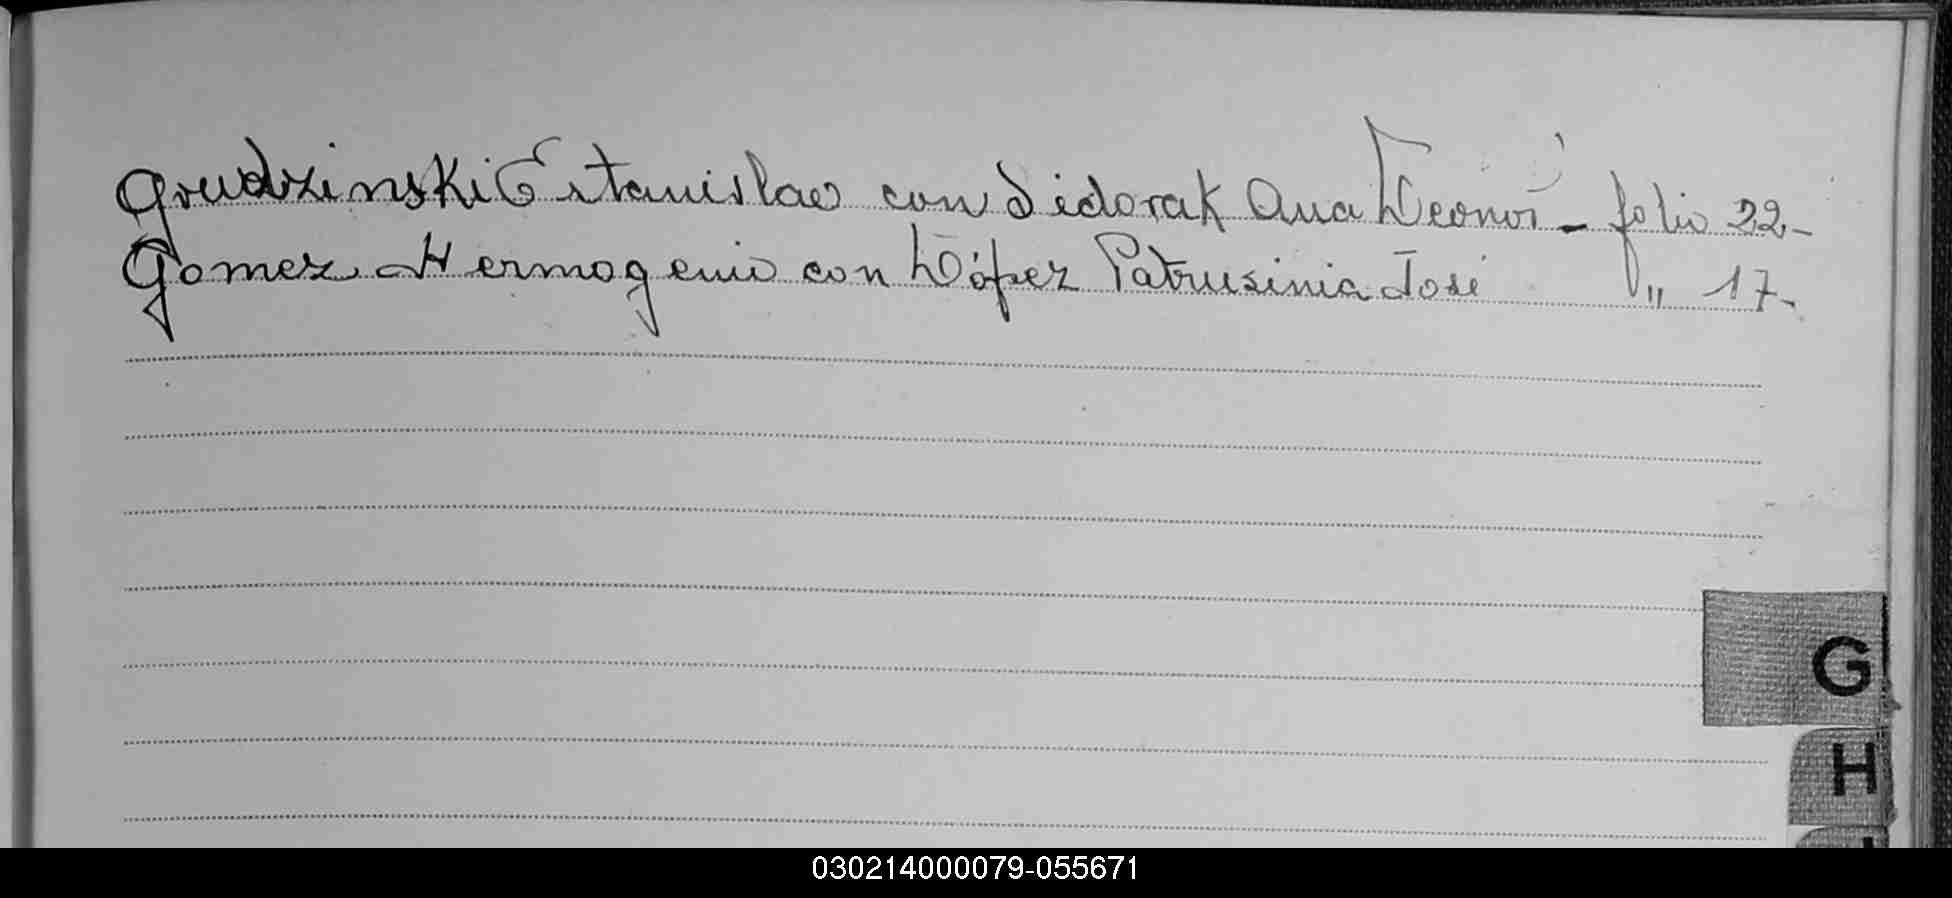 Grudzinski Estanislao con Sidorak Ana Leonor - folio 22-
Gomez Hermogenio con López Patrusinia José " 17-
G
H
030214000079-055671